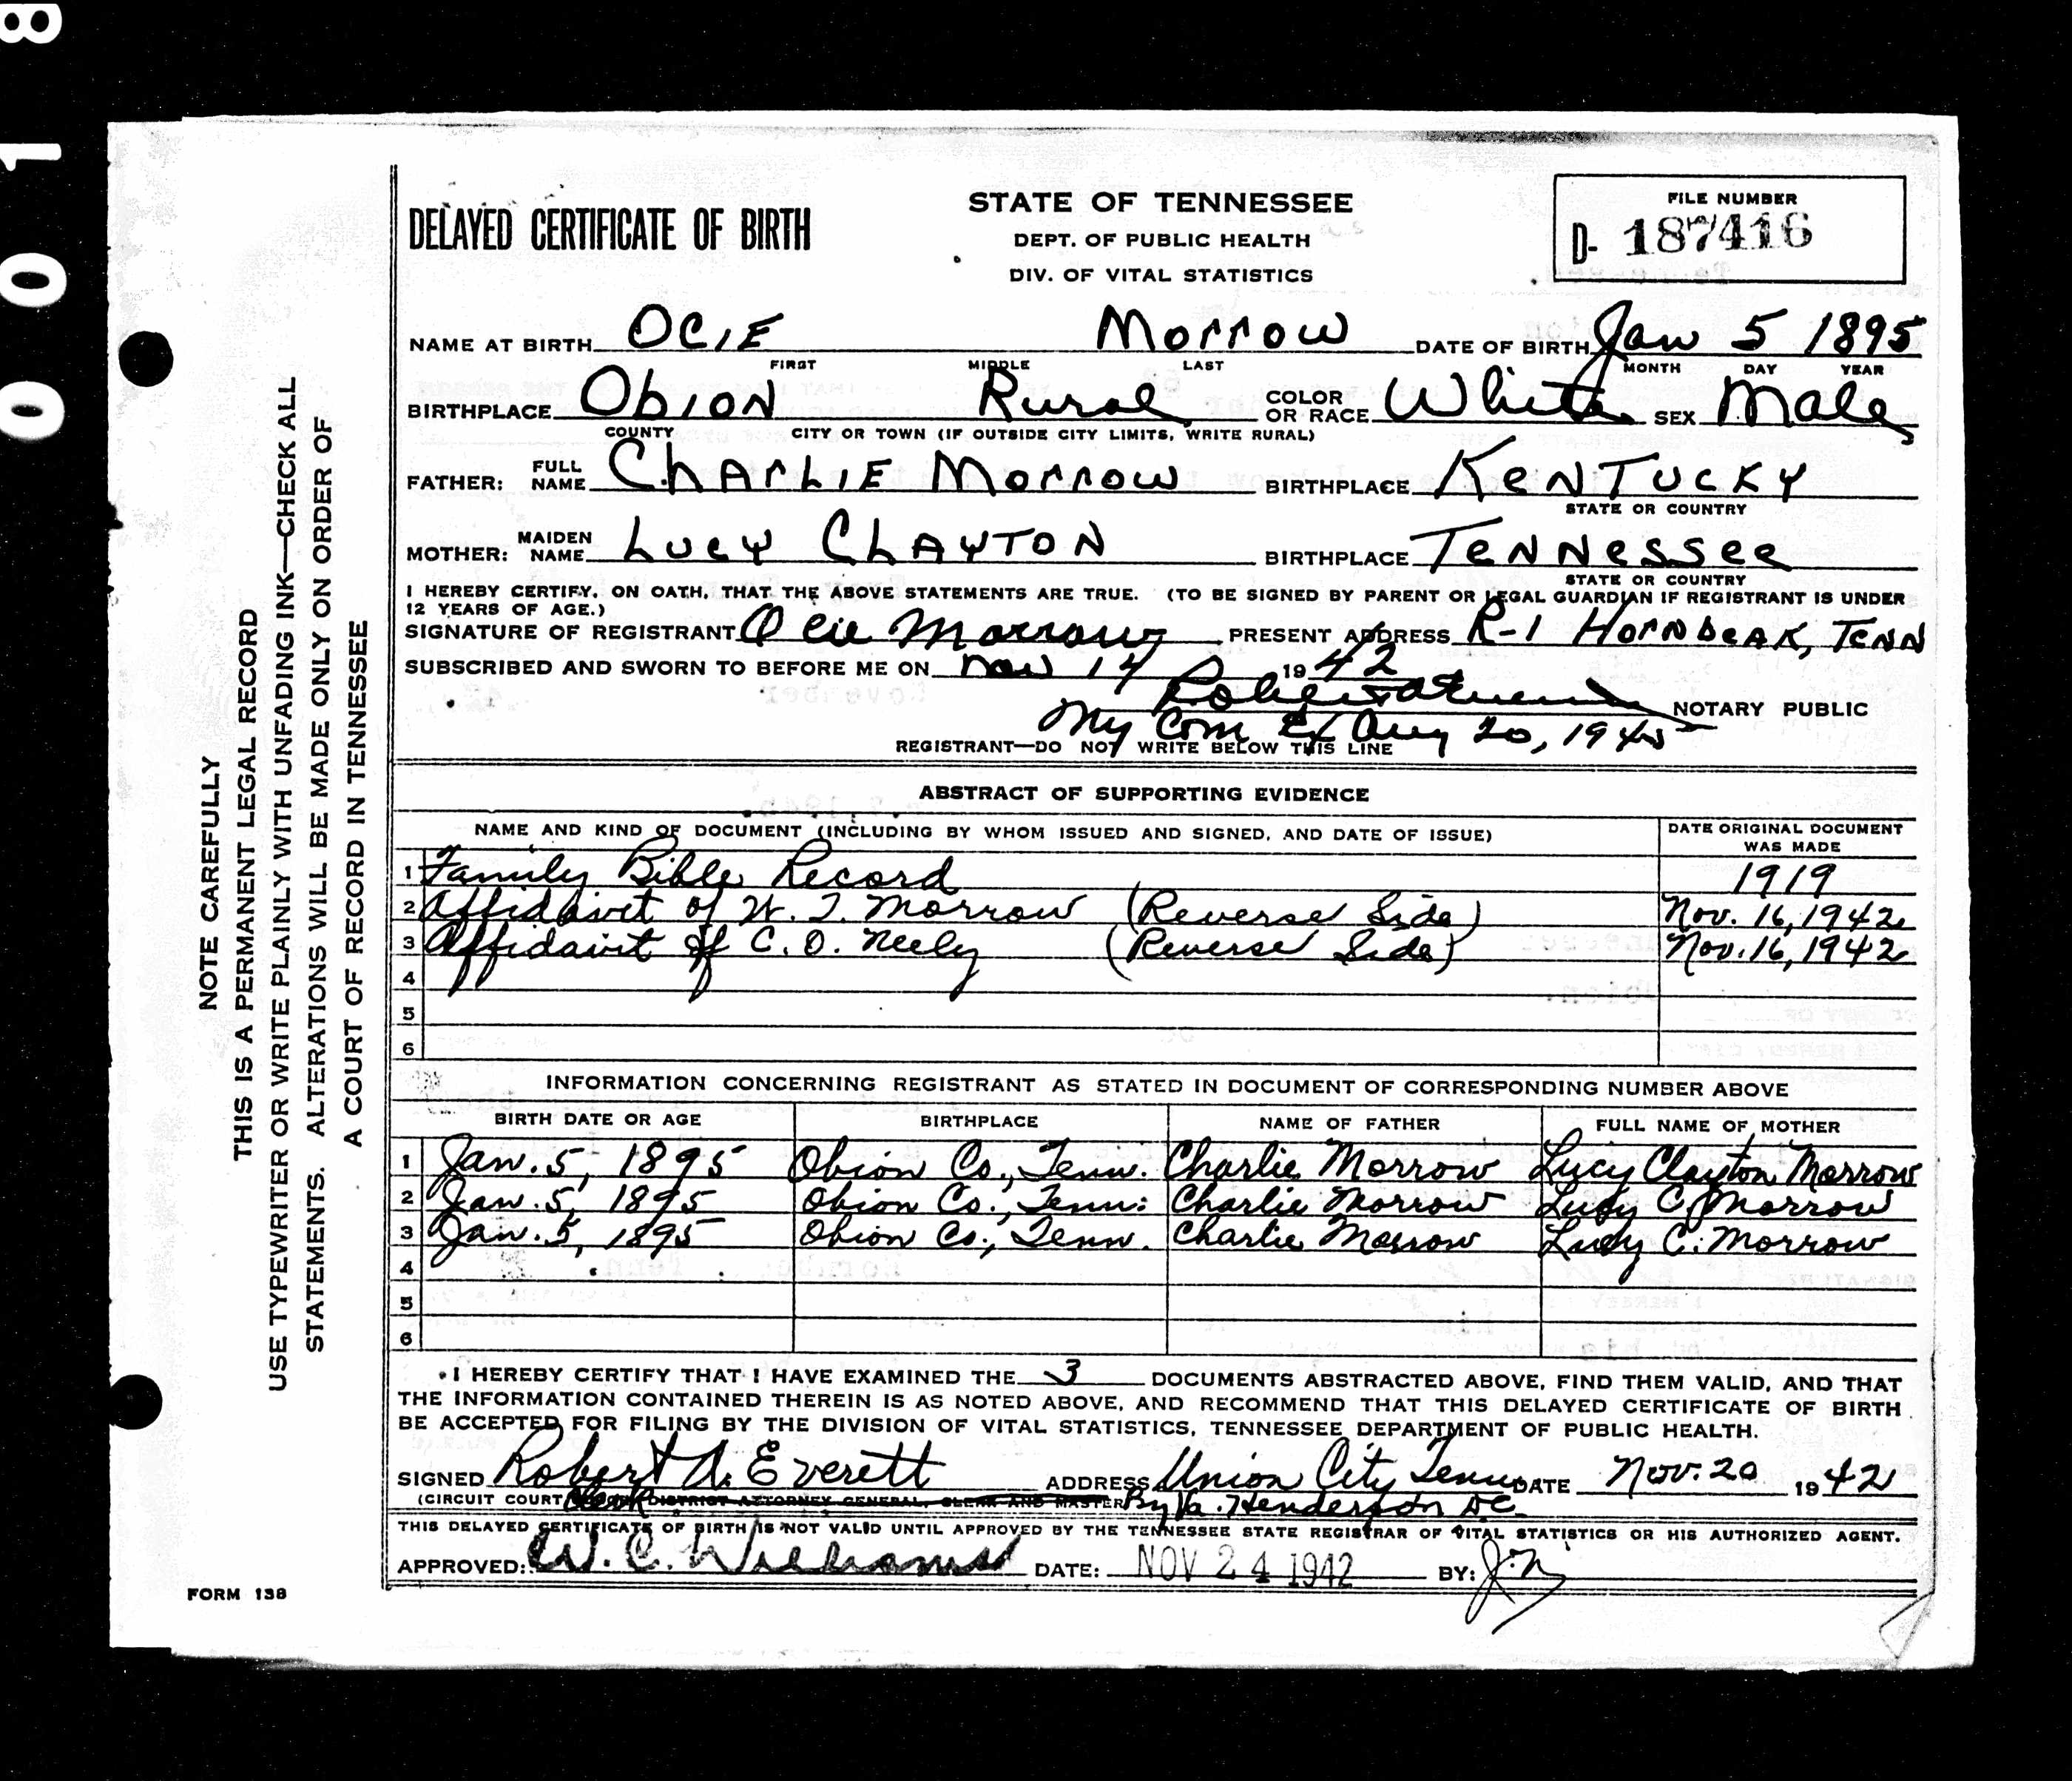 0018
NOTE CAREFULLY
THIS IS A PERMANENT LEGAL RECORD
USE TYPEWRITER OR WRITE PLAINLY WITH UNFADING INK—CHECK ALL
STATEMENTS. ALTERATIONS WILL BE MADE ONLY ON ORDER OF
A COURT OF RECORD IN TENNESSEE
DELAYED CERTIFICATE OF BIRTH
STATE OF TENNESSEE
DEPT. OF PUBLIC HEALTH
DIV. OF VITAL STATISTICS
FILE NUMBER
D- 187416
NAME AT BIRTH OCIE Morrow DATE OF BIRTH Jan 5 1895
FIRST MIDDLE LAST MONTH DAY YEAR
BIRTHPLACE Obion Rural COLOR OR RACE White SEX Male
COUNTY CITY OR TOWN (IF OUTSIDE CITY LIMITS, WRITE RURAL)
FATHER: FULL NAME CHARLIE MORROW BIRTHPLACE KENTUCKY
STATE OR COUNTRY
MOTHER: MAIDEN NAME LUCY CLAYTON BIRTHPLACE TENNESSEE
STATE OR COUNTRY
I HEREBY CERTIFY, ON OATH, THAT THE ABOVE STATEMENTS ARE TRUE. (TO BE SIGNED BY PARENT OR LEGAL GUARDIAN IF REGISTRANT IS UNDER
12 YEARS OF AGE.)
SIGNATURE OF REGISTRANT Ocie Morrow PRESENT ADDRESS R-1 HORNBEAK, TENN
SUBSCRIBED AND SWORN TO BEFORE ME ON Nov 14 1942
NOTARY PUBLIC
My Com Ex Aug 20, 1945
REGISTRANT—DO NOT WRITE BELOW THIS LINE
ABSTRACT OF SUPPORTING EVIDENCE
NAME AND KIND OF DOCUMENT (INCLUDING BY WHOM ISSUED AND SIGNED, AND DATE OF ISSUE) DATE ORIGINAL DOCUMENT WAS MADE
1 Family Bible Record 1919
2 Affidavit of W. T. Morrow (Reverse Side) Nov. 16, 1942
3 Affidavit of C. O. Neely (Reverse Side) Nov. 16, 1942
4
5
6
INFORMATION CONCERNING REGISTRANT AS STATED IN DOCUMENT OF CORRESPONDING NUMBER ABOVE
BIRTH DATE OR AGE BIRTHPLACE NAME OF FATHER FULL NAME OF MOTHER
1 Jan. 5, 1895 Obion Co., Tenn. Charlie Morrow Lucy Clayton Morrow
2 Jan. 5, 1895 Obion Co., Tenn. Charlie Morrow Lucy C. Morrow
3 Jan. 5, 1895 Obion Co., Tenn. Charlie Morrow Lucy C. Morrow
4
5
6
I HEREBY CERTIFY THAT I HAVE EXAMINED THE 3 DOCUMENTS ABSTRACTED ABOVE, FIND THEM VALID, AND THAT
THE INFORMATION CONTAINED THEREIN IS AS NOTED ABOVE, AND RECOMMEND THAT THIS DELAYED CERTIFICATE OF BIRTH
BE ACCEPTED FOR FILING BY THE DIVISION OF VITAL STATISTICS, TENNESSEE DEPARTMENT OF PUBLIC HEALTH.
SIGNED Robert A. Everett ADDRESS Union City Tenn DATE Nov. 20 1942
(CIRCUIT COURT Clerk DISTRICT ATTORNEY GENERAL, CLERK AND MASTER By Henderson D.C.
THIS DELAYED CERTIFICATE OF BIRTH IS NOT VALID UNTIL APPROVED BY THE TENNESSEE STATE REGISTRAR OF VITAL STATISTICS OR HIS AUTHORIZED AGENT.
APPROVED: W. C. Williams DATE: NOV 24 1942 BY:
FORM 138